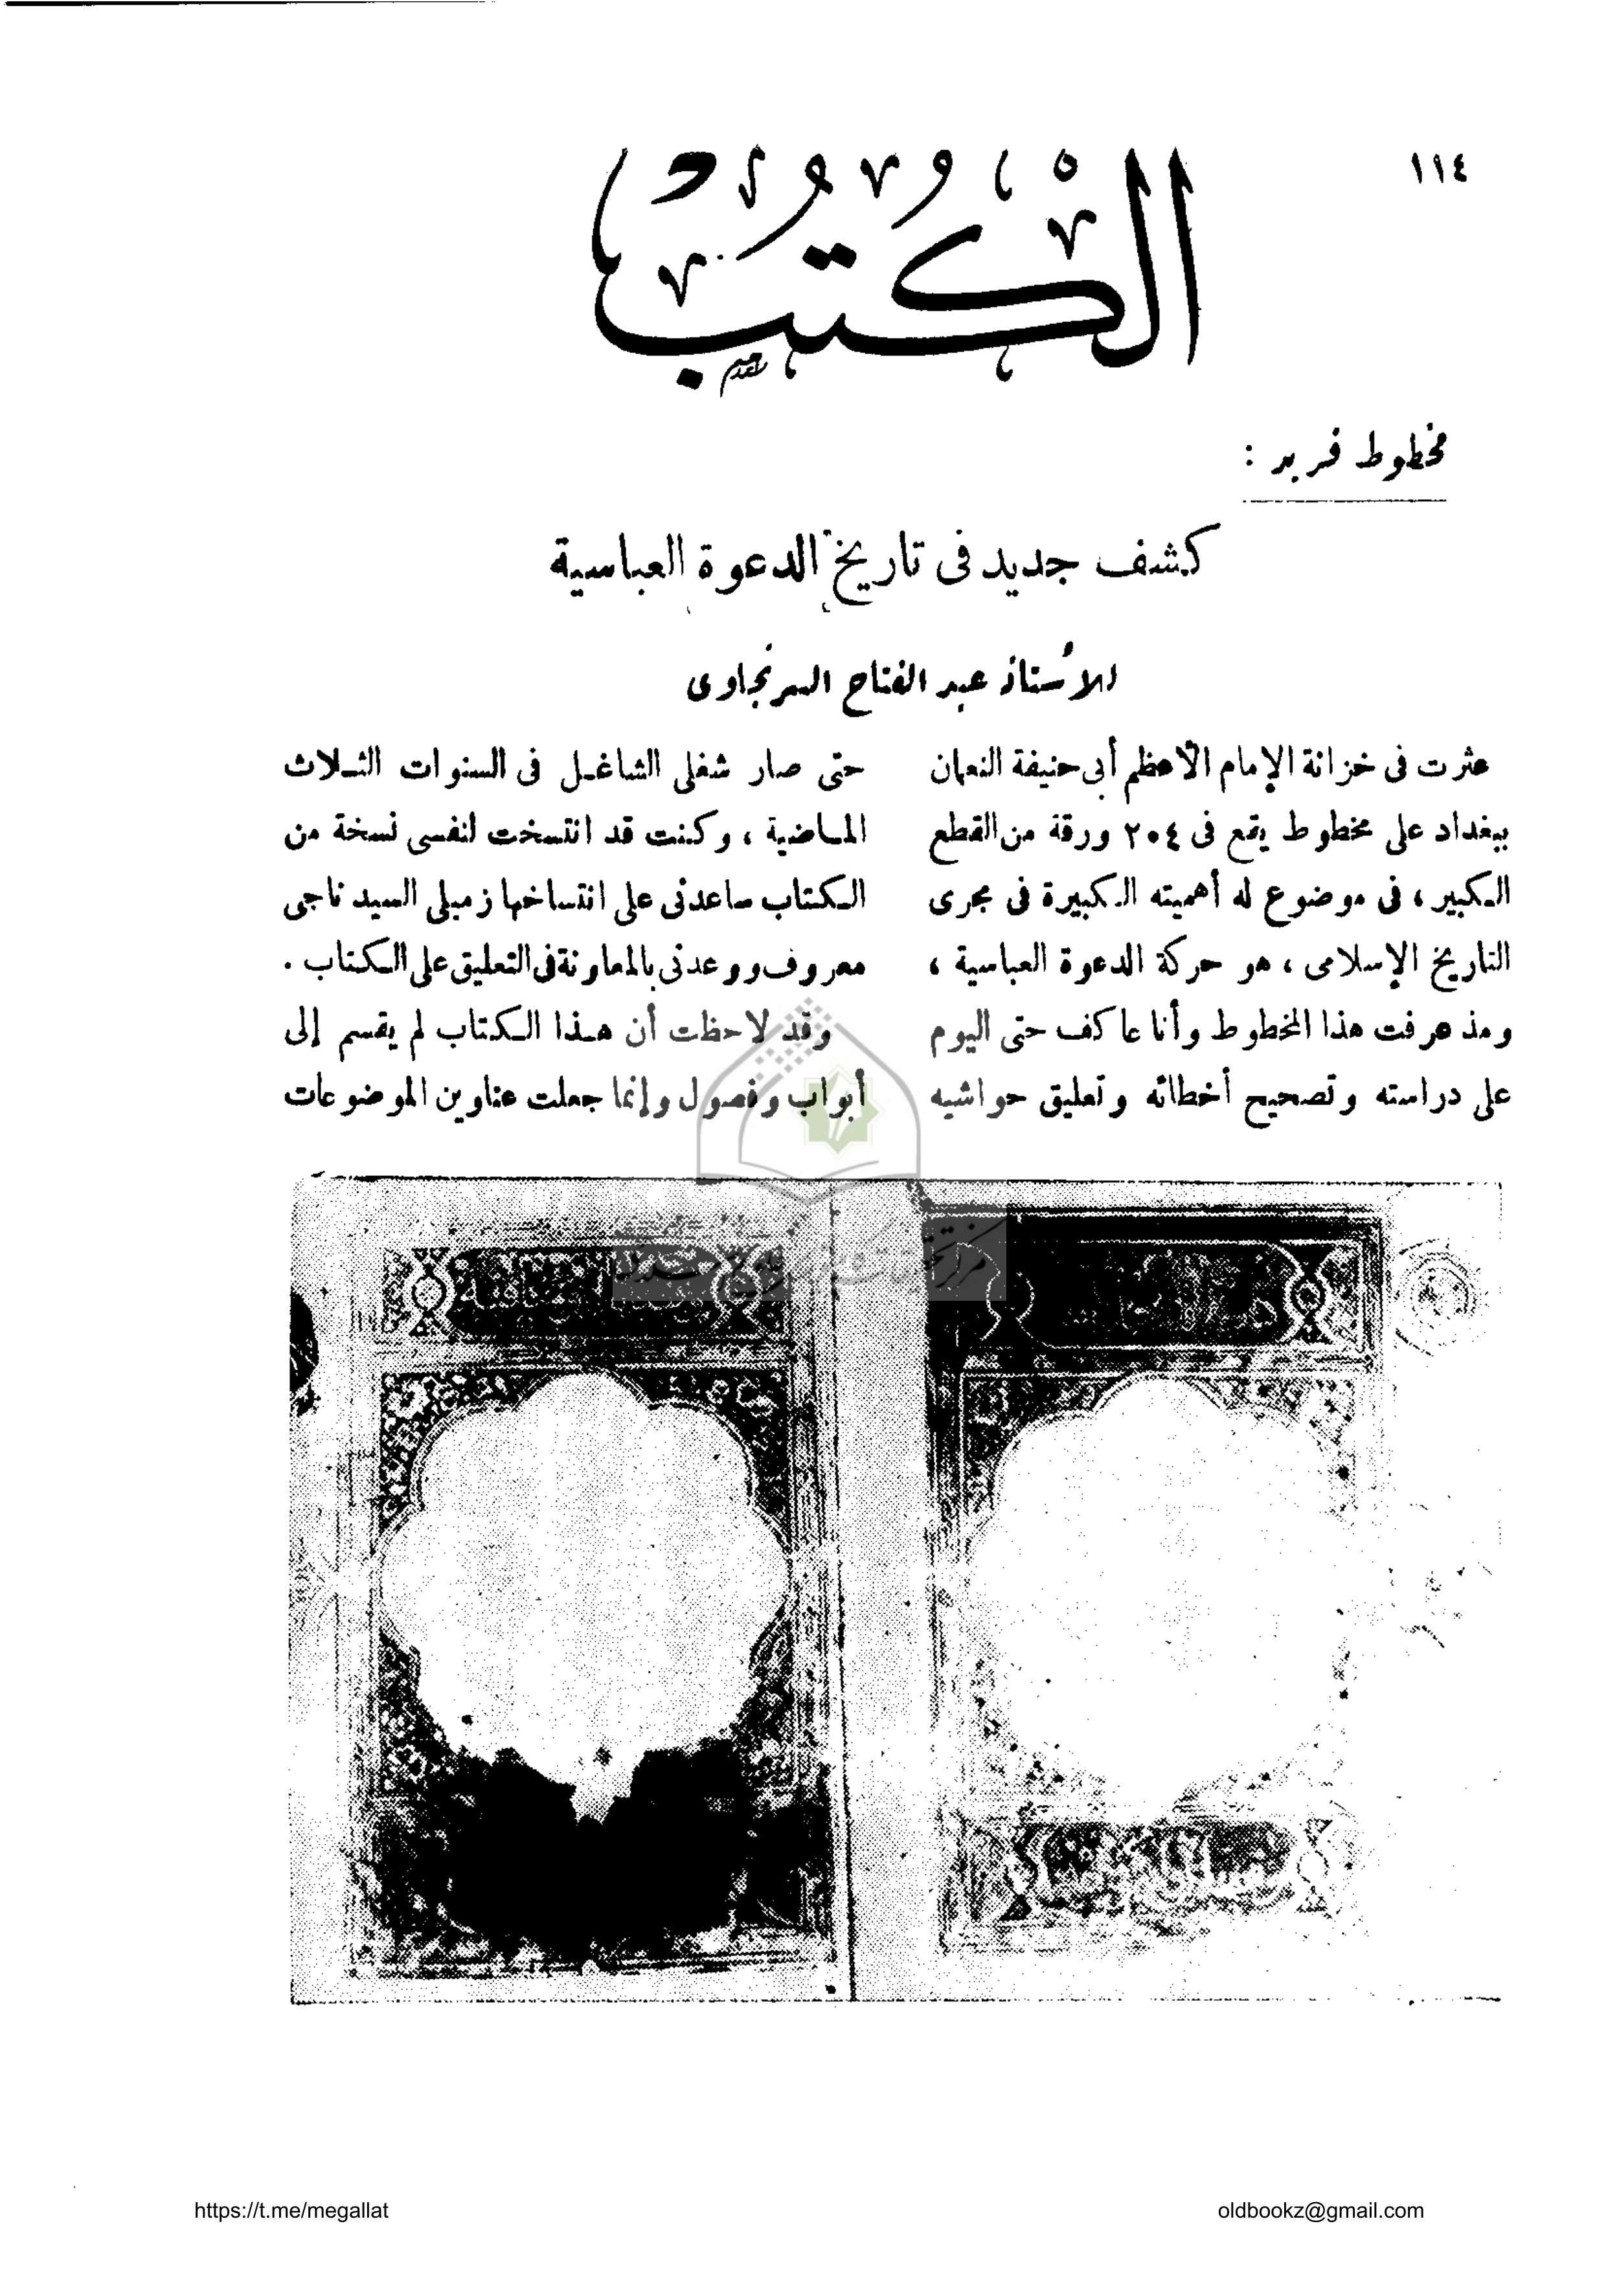 ١١٤
الكتب
مخطوط فريد :
كشف جديد فى تاريخ الدعوة العباسية
للأستاذ عبد الفتاح السرنجاوى
عثرت فى خزانة الإمام الأعظم أبى حنيفة النعمان
ببغداد على مخطوط يقع فى ٢٠٤ ورقة من القطع
الكبير ، فى موضوع له أهميته الكبيرة فى مجرى
التاريخ الإسلامى ، هو حركة الدعوة العباسية ،
ومذ عرفت هذا المخطوط وأنا عاكف حتى اليوم
على دراسته وتصحيح أخطائه وتعليق حواشيه
حتى صار شغلى الشاغل فى السنوات الثلاث
الماضية ، وكنت قد انتسخت لنفسى نسخة من
الكتاب ساعدنى على انتساخها زميلى السيد ناجى
معروف ووعدنى بالمعاونة فى التعليق على الكتاب .
وقد لاحظت أن هذا الكتاب لم يقسم إلى
أبواب وفصول وإنما جعلت عناوين الموضوعات
https://t.me/megallat
oldbookz@gmail.com